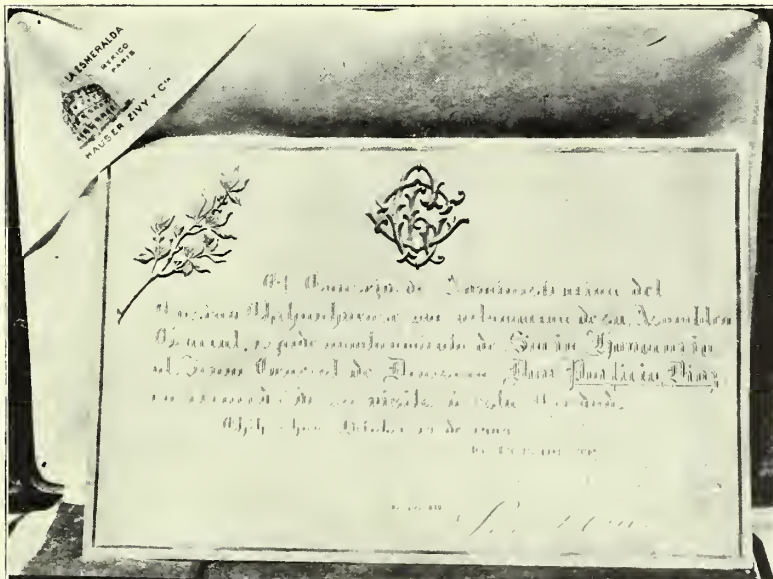 LA ESMERALDA
MEXICO
PARIS
HAUSER ZIVY Y Cia
El Consejo de Administracion del
Casino Chihuahuense por aclamacion de su Asamblea
General, expide nombramiento de Socio Honorario
al Señor General de Division Don Porfirio Diaz,
en recuerdo de su visita á esta Ciudad.
Chihuahua, Octubre de